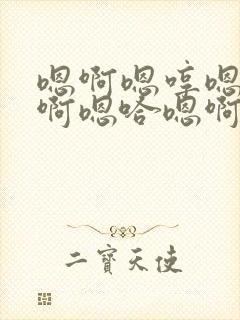 嗯啊嗯哼嗯
啊嗯哈嗯啊
二寶天使